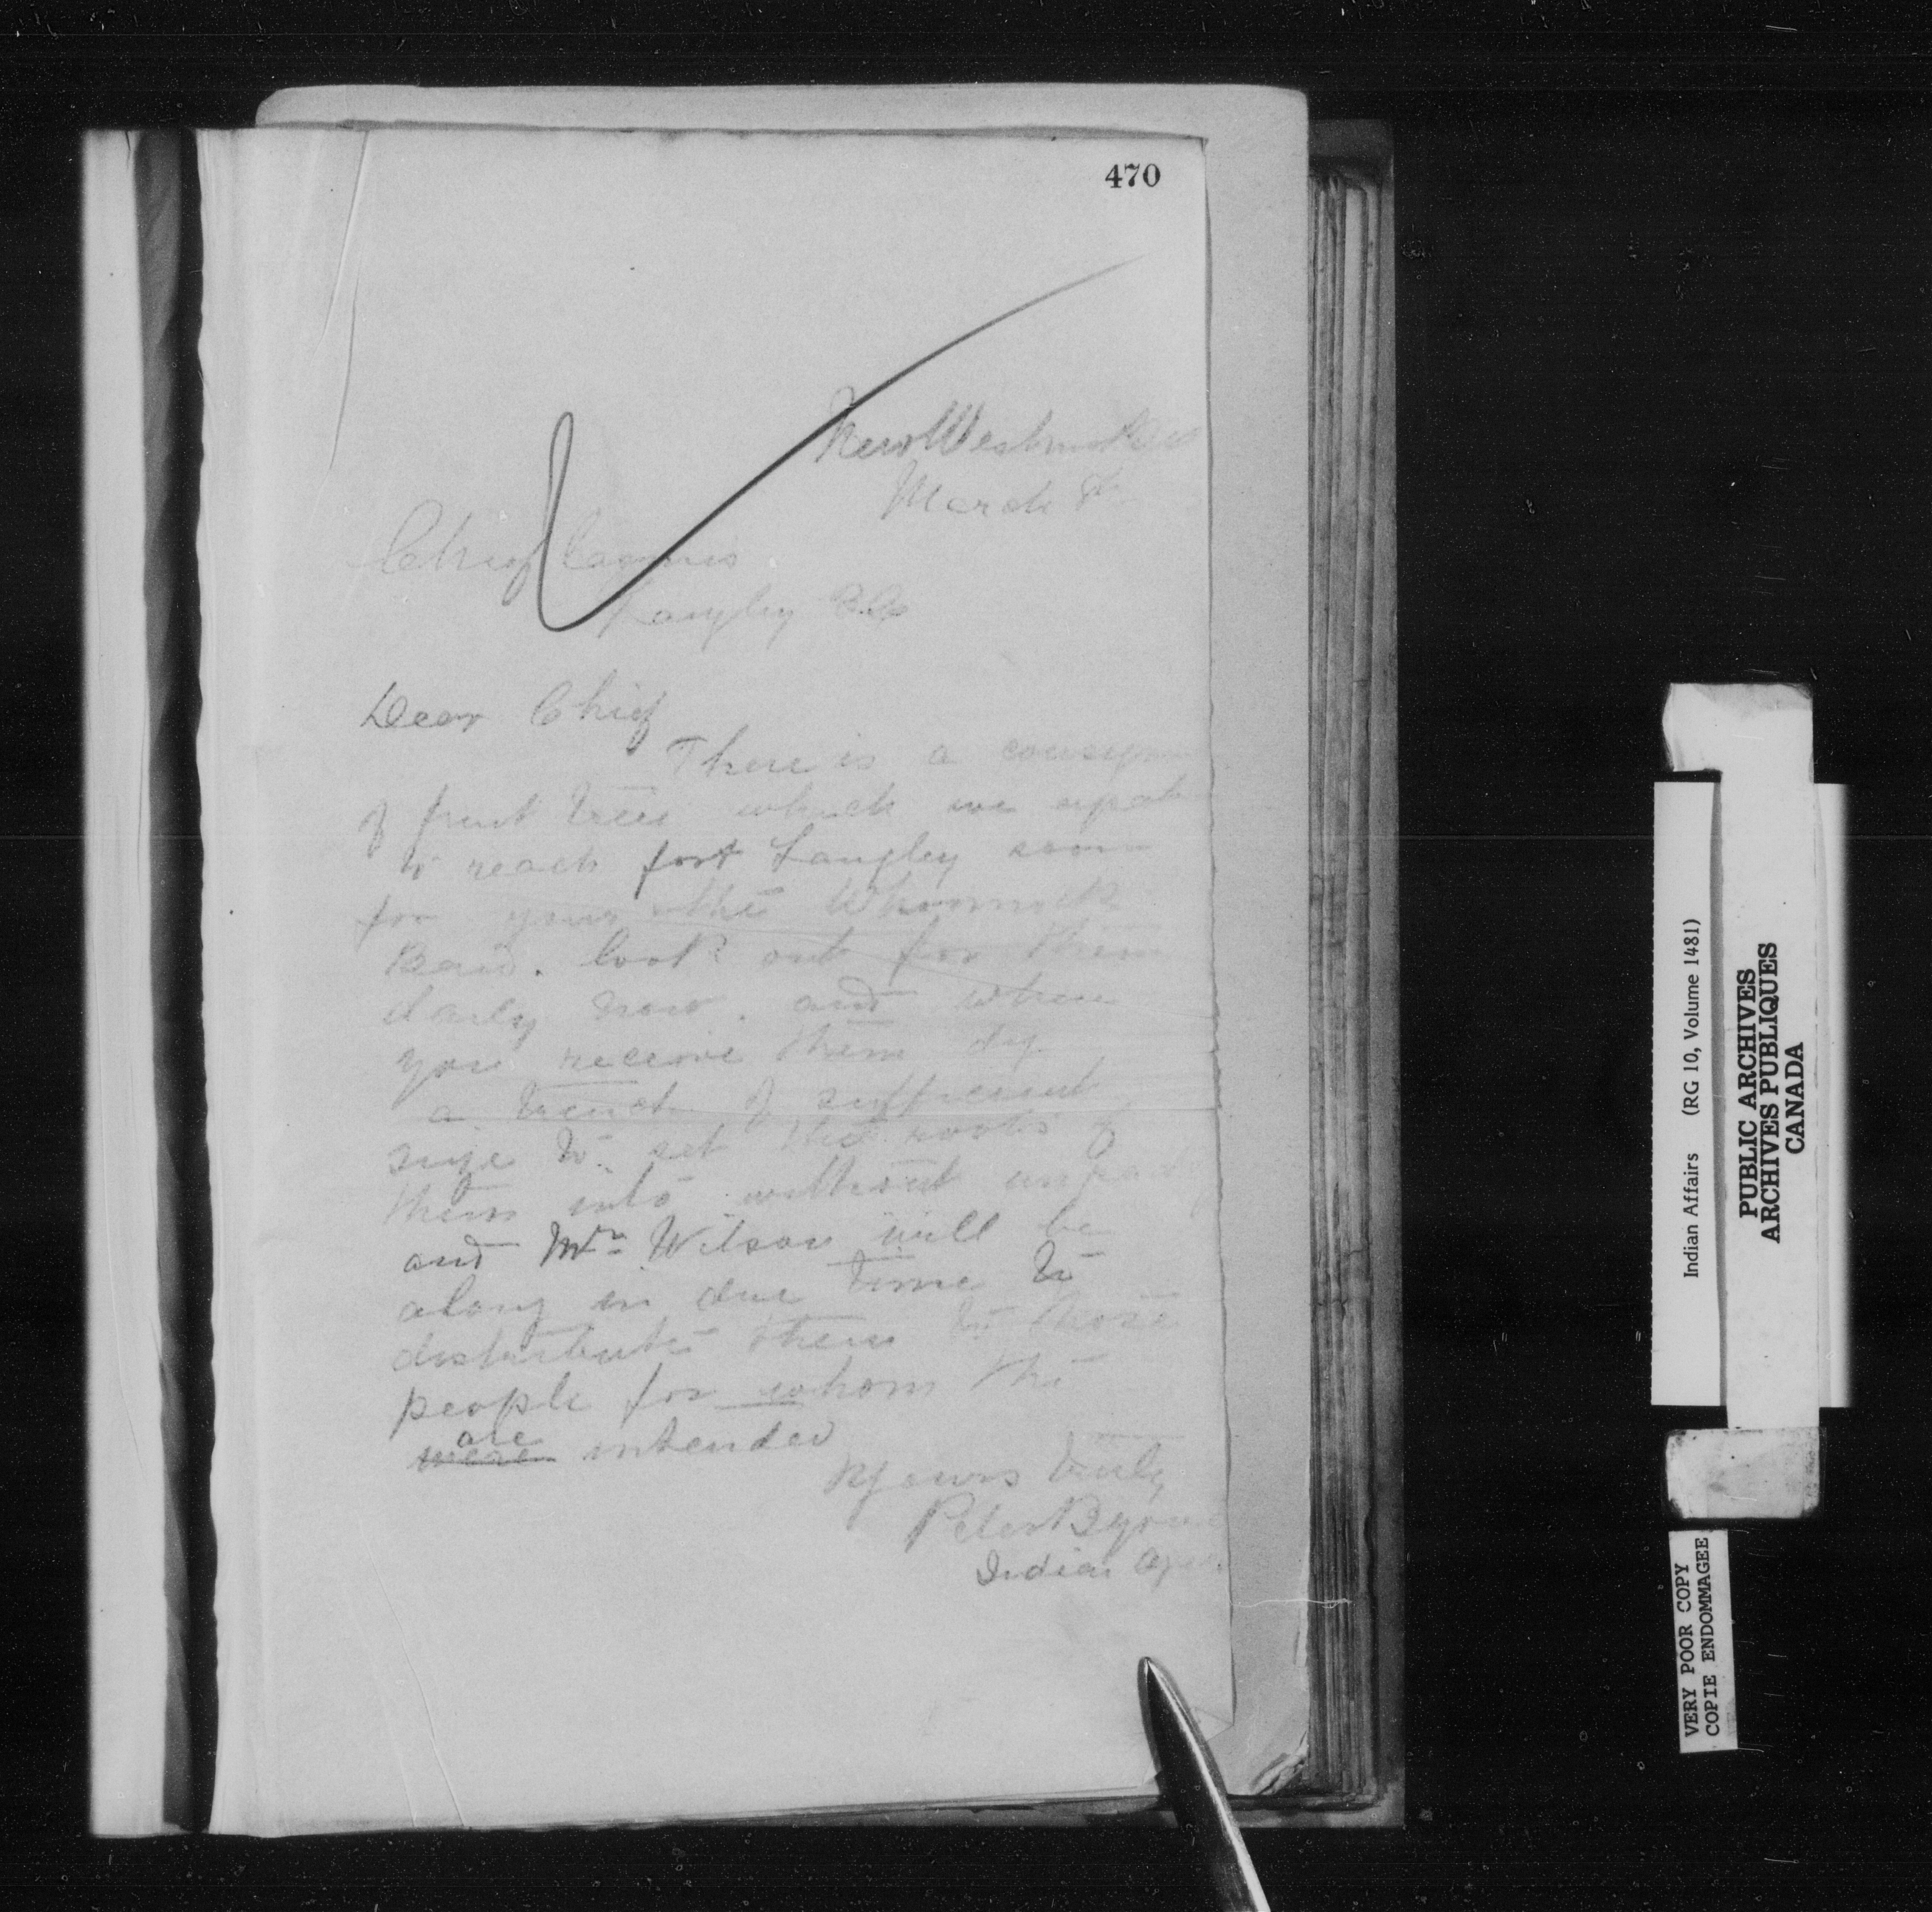 470
New Westminster
March 8th
Chief
Langley B.C.
Dear Chief
There is a consign
of fruit trees which we expect
to reach fort Langley soon
for your the Whonnock
Band. look out for them
daily now. and when
you receive them dig
a trench of sufficient
size to set the roots of
them into without
and Mr. Wilson will be
along in due time to
distribute them to those
people for whom the
are
were intended
Yours truly
Peter Byrne
Indian Agen
Indian Affairs (RG 10, Volume 1481)
PUBLIC ARCHIVES
ARCHIVES PUBLIQUES
CANADA
VERY POOR COPY
COPIE ENDOMMAGEE